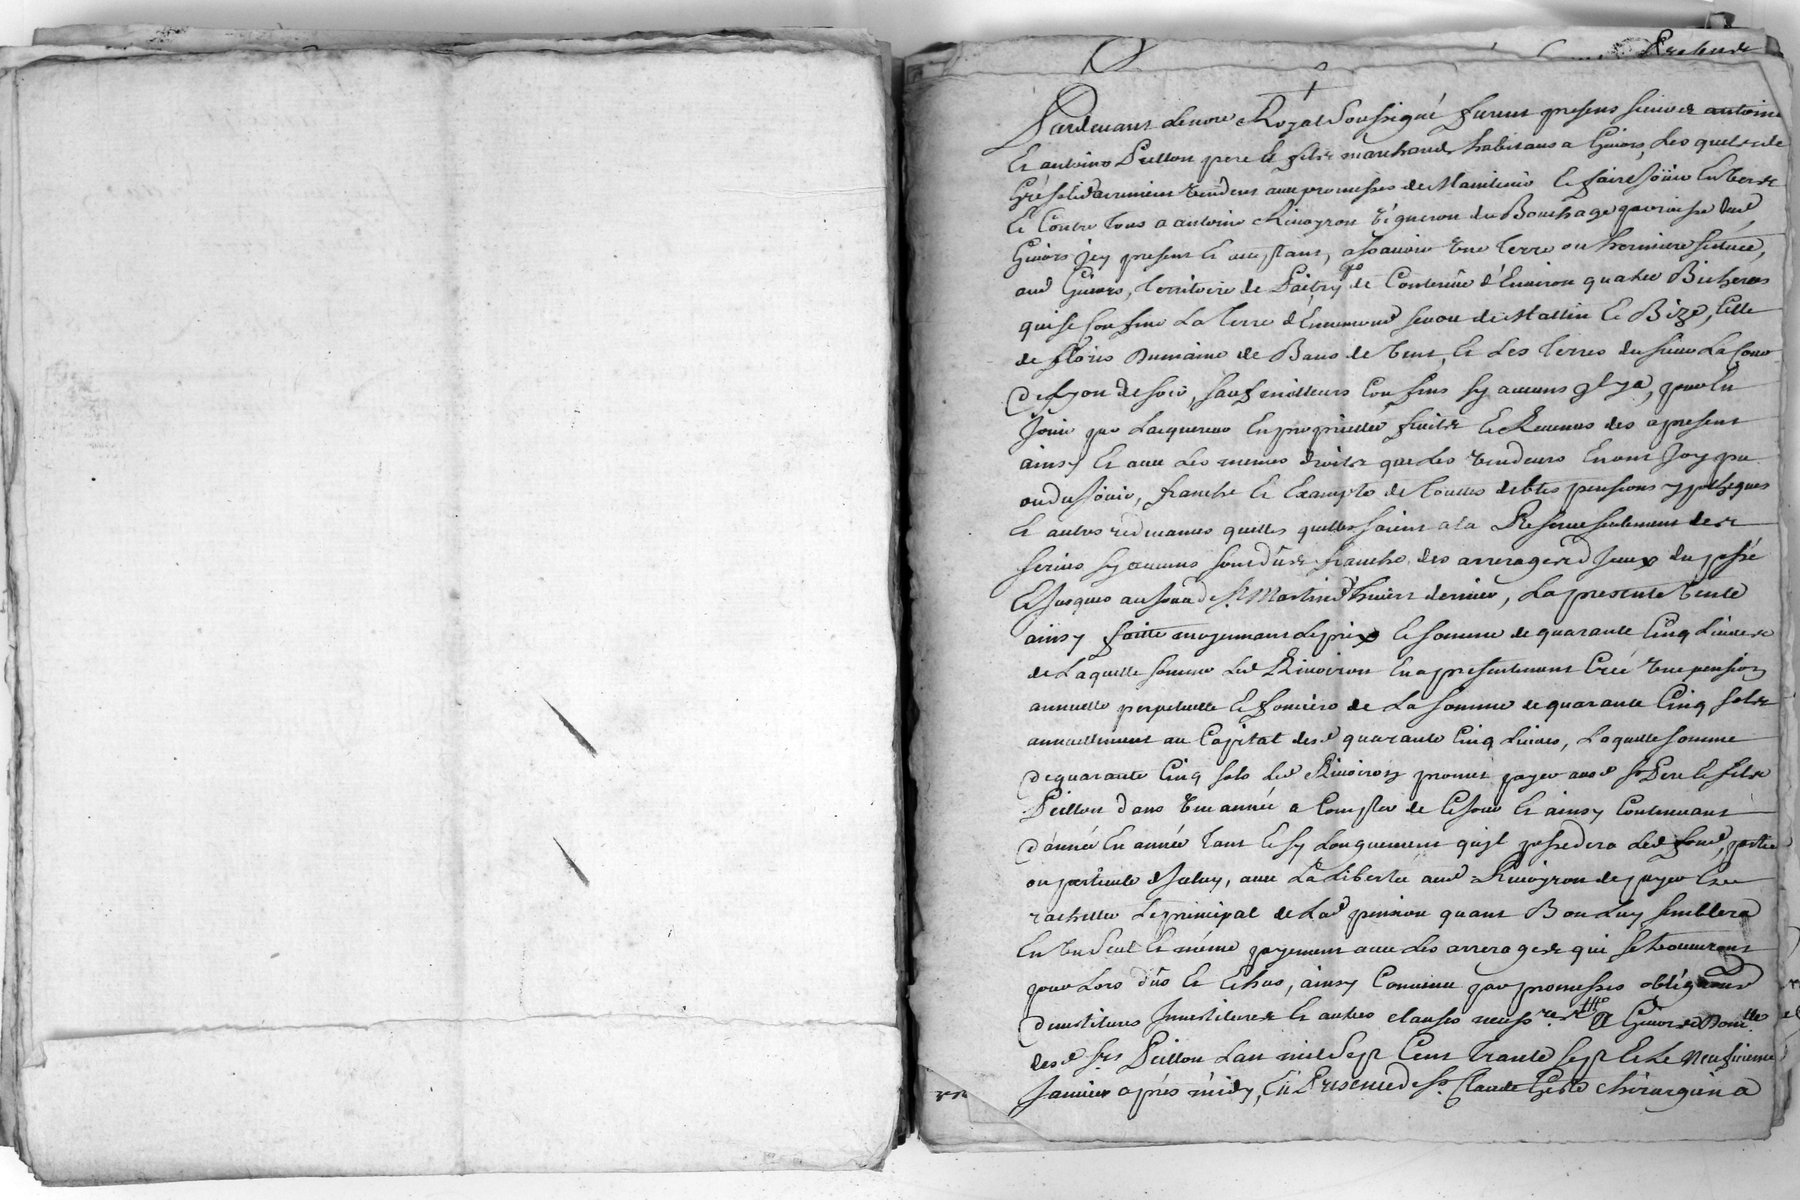 Pardevant le no.re Royal Soussigné furent presens sieurs antoine
Et antoine Peillon pere et fils marchands habitans a Givors, Lesquels de
Gré solidairement vendent avec promesses de Maintenir et faire Jöuir Envers
Et Contre tous a antoine Rivoyron vigneron du Bouchage parroisse dud
Givors jcy present et acceptant, asscavoir une terre ou hermiere scituée,
aud Givors, territoire de de Contenüe d'Environ quatre Bicherees
qui se Confine La terre d'Ennemond de Mattin et Bize, Celle
de Floris Dumaine de Bans de vent, et Les terres du sieur
De Lyon de soir, sauf meilleurs Confins sy aucuns y a, pour En
Jouir par L'acquereur En proprietté fruits et Revenus des apresent
ainsy et avec Les memes droits que Les vendeurs En ont Joy pu
ou du Jöuir, franche et Exampte de touttes debtes pensions ypotheques
et autres redevances quelles quelles soient a la Reserve seulement des
servis sy aucuns sont dûs franche des arrerages d'jceux du passé
Et Jusques au Jour de St Martin d'hiver dernier, La presente vente
ainsy faitte moyennant Le prix et somme de quarante Cinq Livres
de Laquelle somme Led Rivoiron En a presentement Créé une pension
annuelle perpetuelle et fonciere de La somme de quarante Cinq sols
annuellement au Capital desd quarante Cinq Livres, Laquelle somme
De quarante Cinq sols Led Rivoiron promet payer aud Srs Pere et fils
Peillon dans une année a Compter de Ce Jour et ainsy Continuant
D'année En année tant et sy Longuement qu'jl possedera Led fond, partie
ou particule d'jceluy, avec La Liberté aud Rivoyron de payer et
rachetter Le principal de Lad pension quant Bon Luy semblera
En un seul et même payement avec Les arrerages qui se trouveront
pour Lors dûs et Echus, ainsy Convenu par promesses obligaons
Devestitures Jnvestitures et autres clauses A Givors
desd Srs Peillon L'an mil Sept Cent Trante Sept et Le Neufvieme
Janvier après midy, En Presence de Sr. Claude chirurgien a